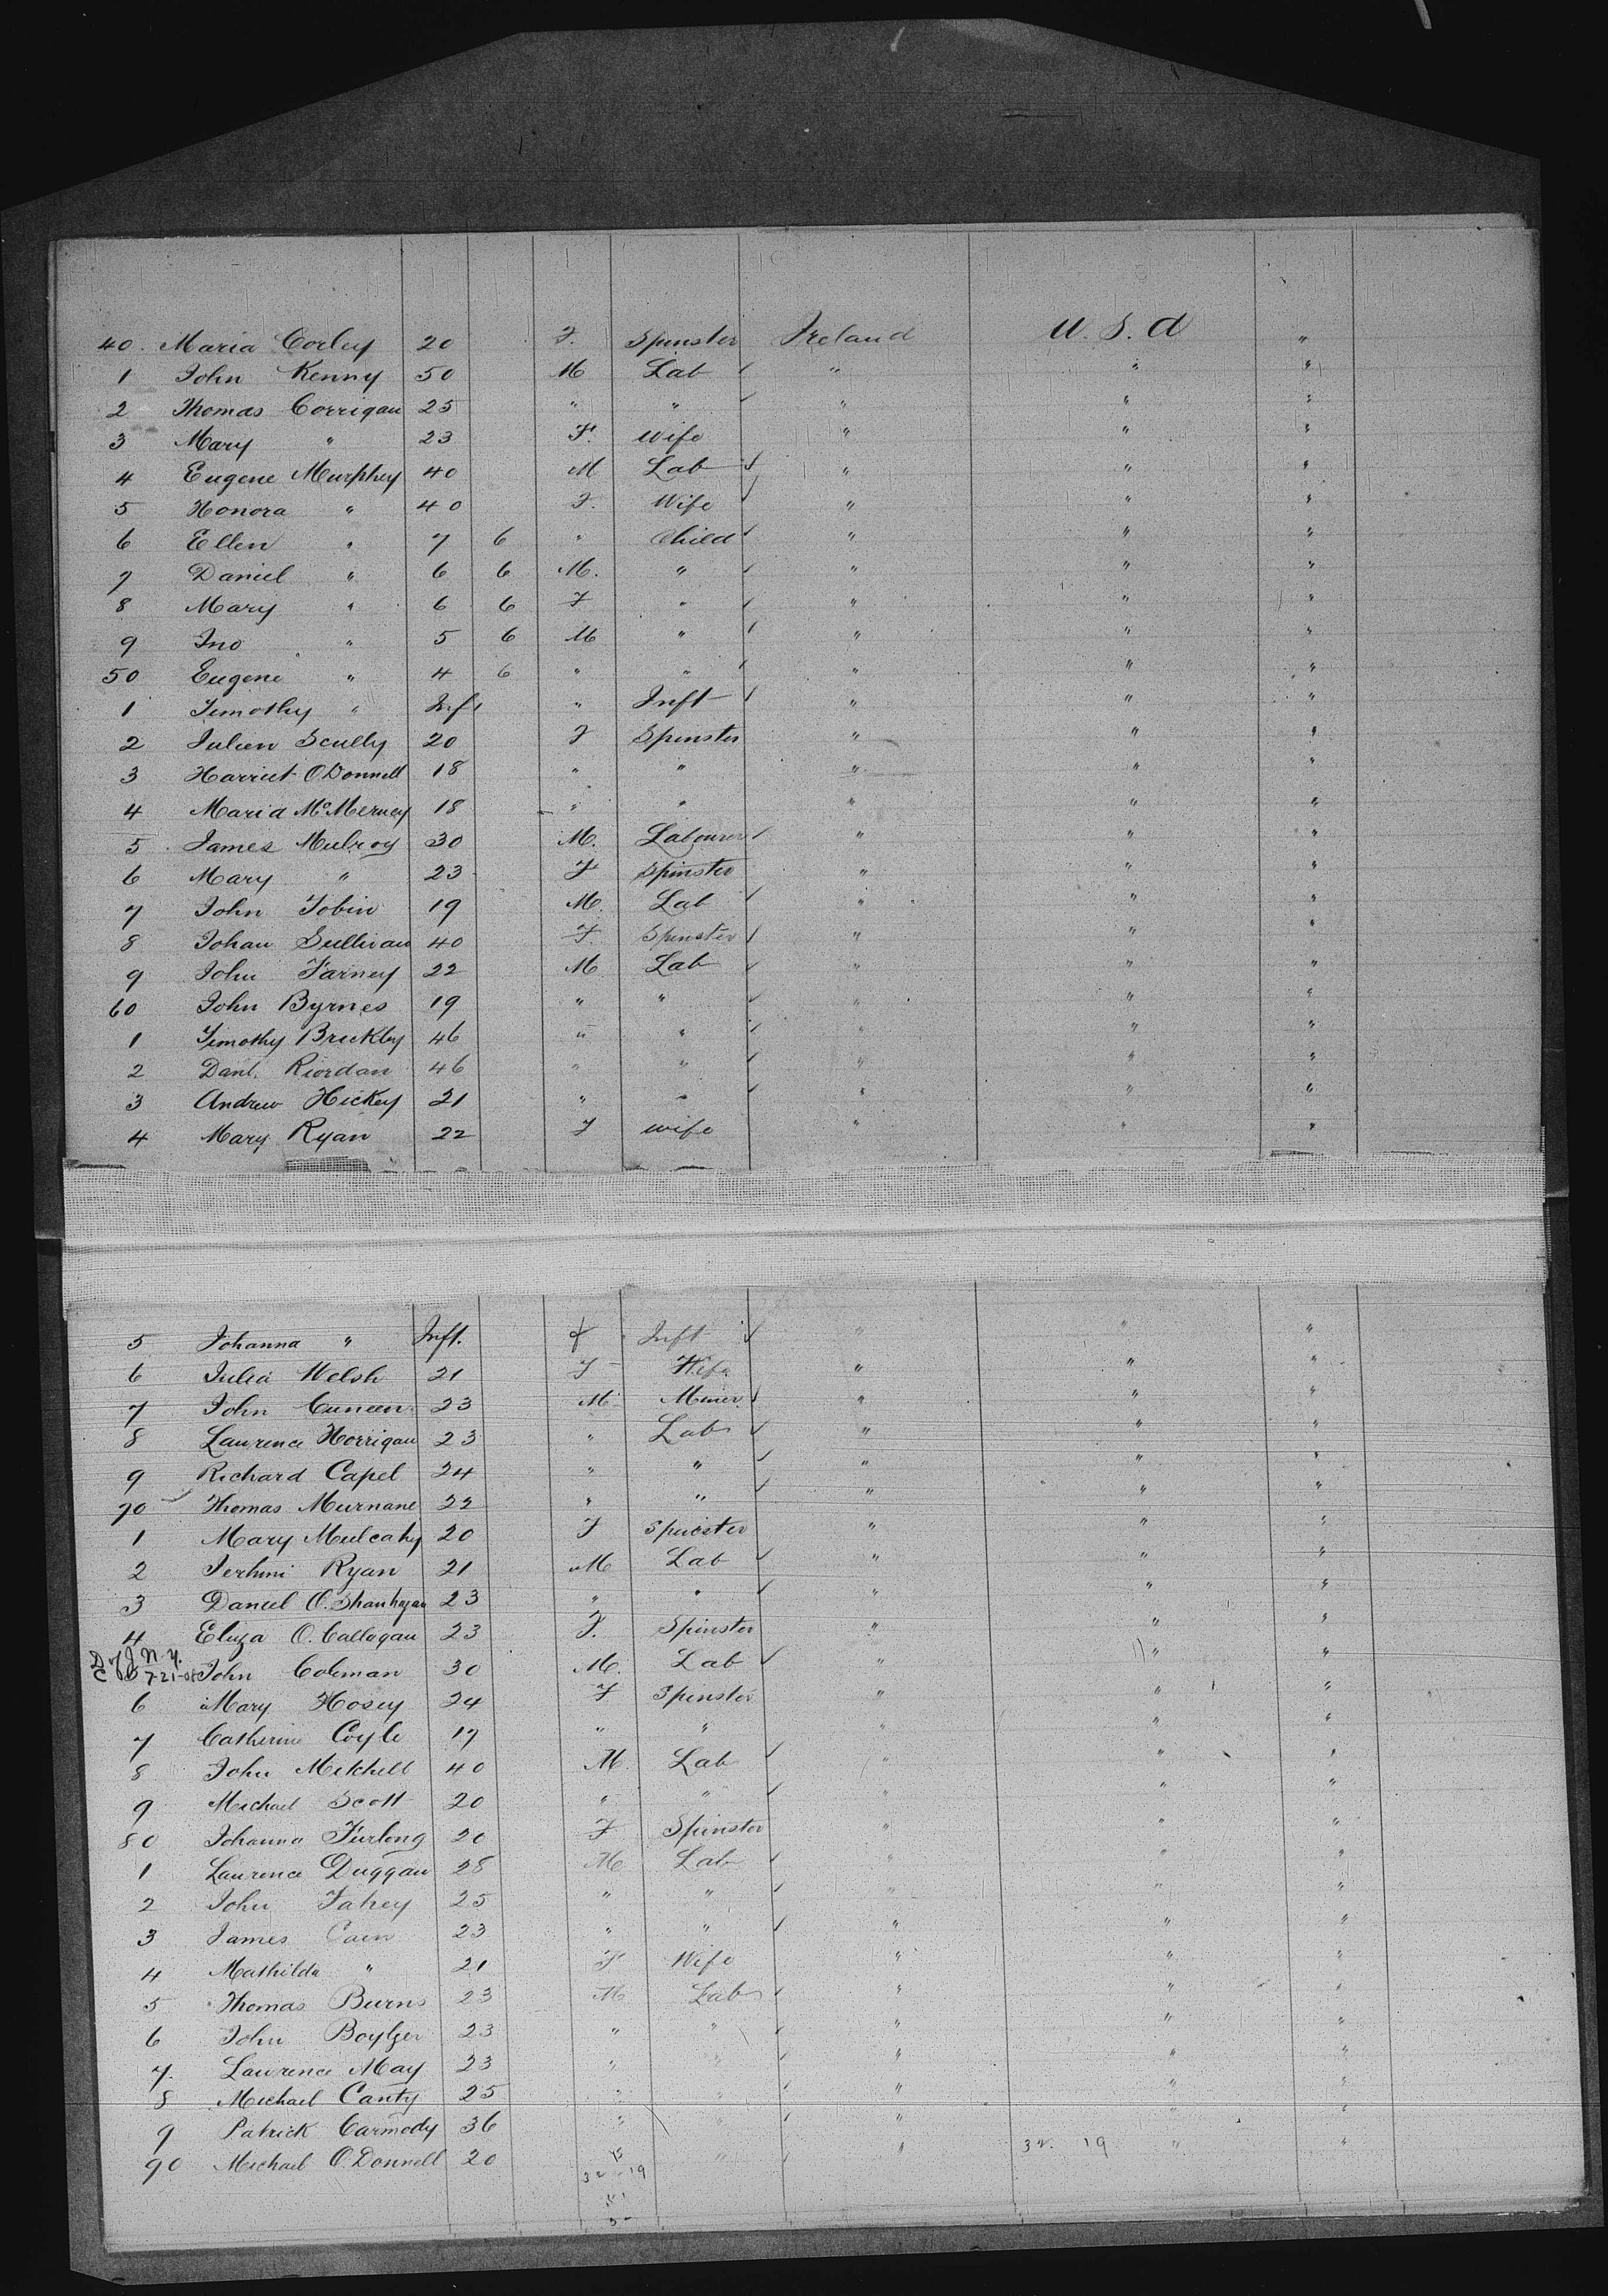 40. Maria Corley 20 F. Spinster Ireland U.S.A "
1 John Kenny 50 M Lab " " "
2 Thomas Corrigan 25 " " " " "
3 Mary " 23 F. Wife " " "
4 Eugene Murphey 40 M Lab " " "
5 Honora " 40 F. Wife " " "
6 Ellen " 7 6 " Child " " "
7 Daniel " 6 6 M. " " " "
8 Mary " 6 6 F " " " "
9 Jno " 5 6 M " " " "
50 Eugene " 4 6 " " " " "
1 Timothy " Inf " Inft " " "
2 Julien Scully 20 F Spinster " " "
3 Harriet O'Donnell 18 " " " " "
4 Maria 18 " " " " "
5 James Mulroy 30 M. Labourer " " "
6 Mary " 23 F Spinster " " "
7 John Tobin 19 M. Lab " " "
8 Johan Sullivan 40 F. Spinster " " "
9 John Farney 22 M Lab " " "
60 John Byrnes 19 " " " " "
1 Timothy Brickley 46 " " " " "
2 Danl. Riordan 46 " " " " "
3 Andrew Hickey 21 " " " " "
4 Mary Ryan 22 F Wife " " "
5 Johanna " Inft. f Inft " " "
6 Julia Welsh 21 F Wife " " "
7 John Cuneen 23 M Miner " " "
8 Laurence Horrigan 23 " Lab " " "
9 Richard Capel 24 " " " " "
70 Thomas Murnane 22 " " " " "
1 Mary Mulcahy 20 F Spinster " " "
2 Ryan 21 M Lab " " "
3 Daniel O. Shanhagan 23 " " " " "
4 Eliza O. Callagan 23 F. Spinster " " "
N.Y.
7-21- John Coleman 30 M. Lab " " "
6 Mary Hosey 24 F Spinster " " "
7 Catherine Coyle 17 " " " " "
8 John Mitchell 40 M Lab " " "
9 Michael Scott 20 " " " " "
80 Johanna Furlong 20 F Spinster " " "
1 Laurence Duggan 28 M Lab " " "
2 John Fahey 25 " " " " "
3 James Cain 23 " " " " "
4 Mathilda " 21 F Wife " " "
5 Thomas Burns 23 M Lab " " "
6 John 23 " " " " "
7. Laurence May 23 " " " " "
8 Michael Canty 25 " " " " "
9 Patrick Carmody 36 " " " " "
90 Michael O'Donnell 20 " " " "